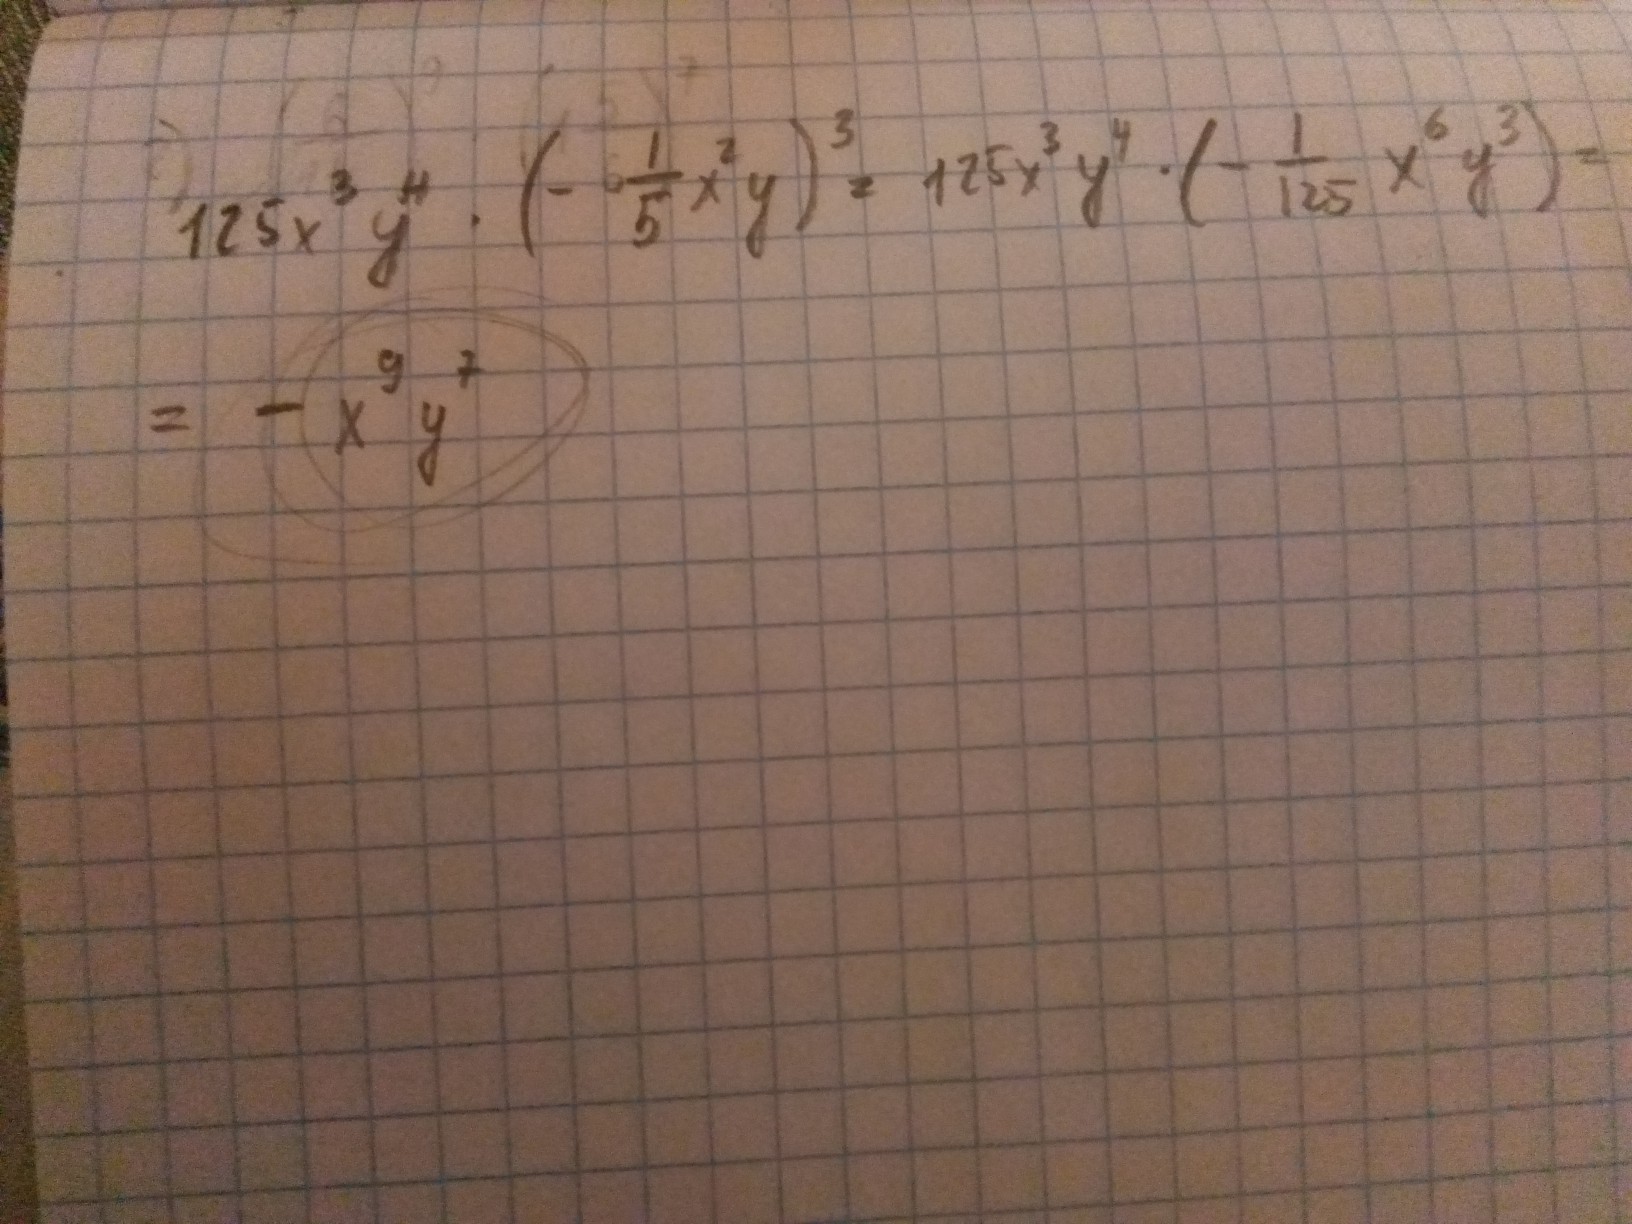 125x³y⁴ · (- 1/5 x²y)³ = 125x³y⁴ · (- 1/125 x⁶y³) =
= - x⁹y⁷